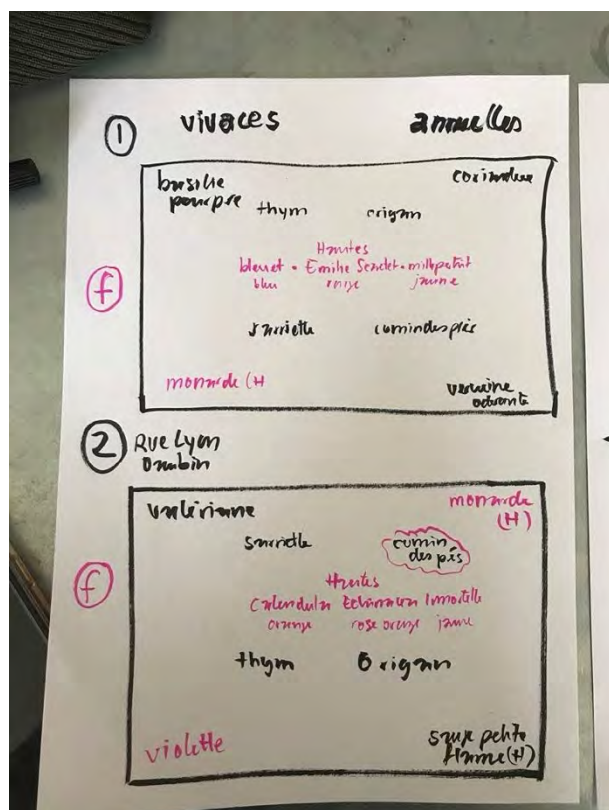 ① vivaces annuelles
basilic coriandre
pourpre thym origan
Hautes
bleuet • Emilie Scarlet • millepertuis
bleu rouge jaune
f
sarriette cumin des prés
monarde (H
verveine
odorante
② Rue Lyon
Dombin
valériane monarde
(H)
sarriette cumin
des prés
f
Hautes
Calendula Echinacea Immortelle
orange rose orange jaune
thym Origan
violette sauge petite
flamme (H)